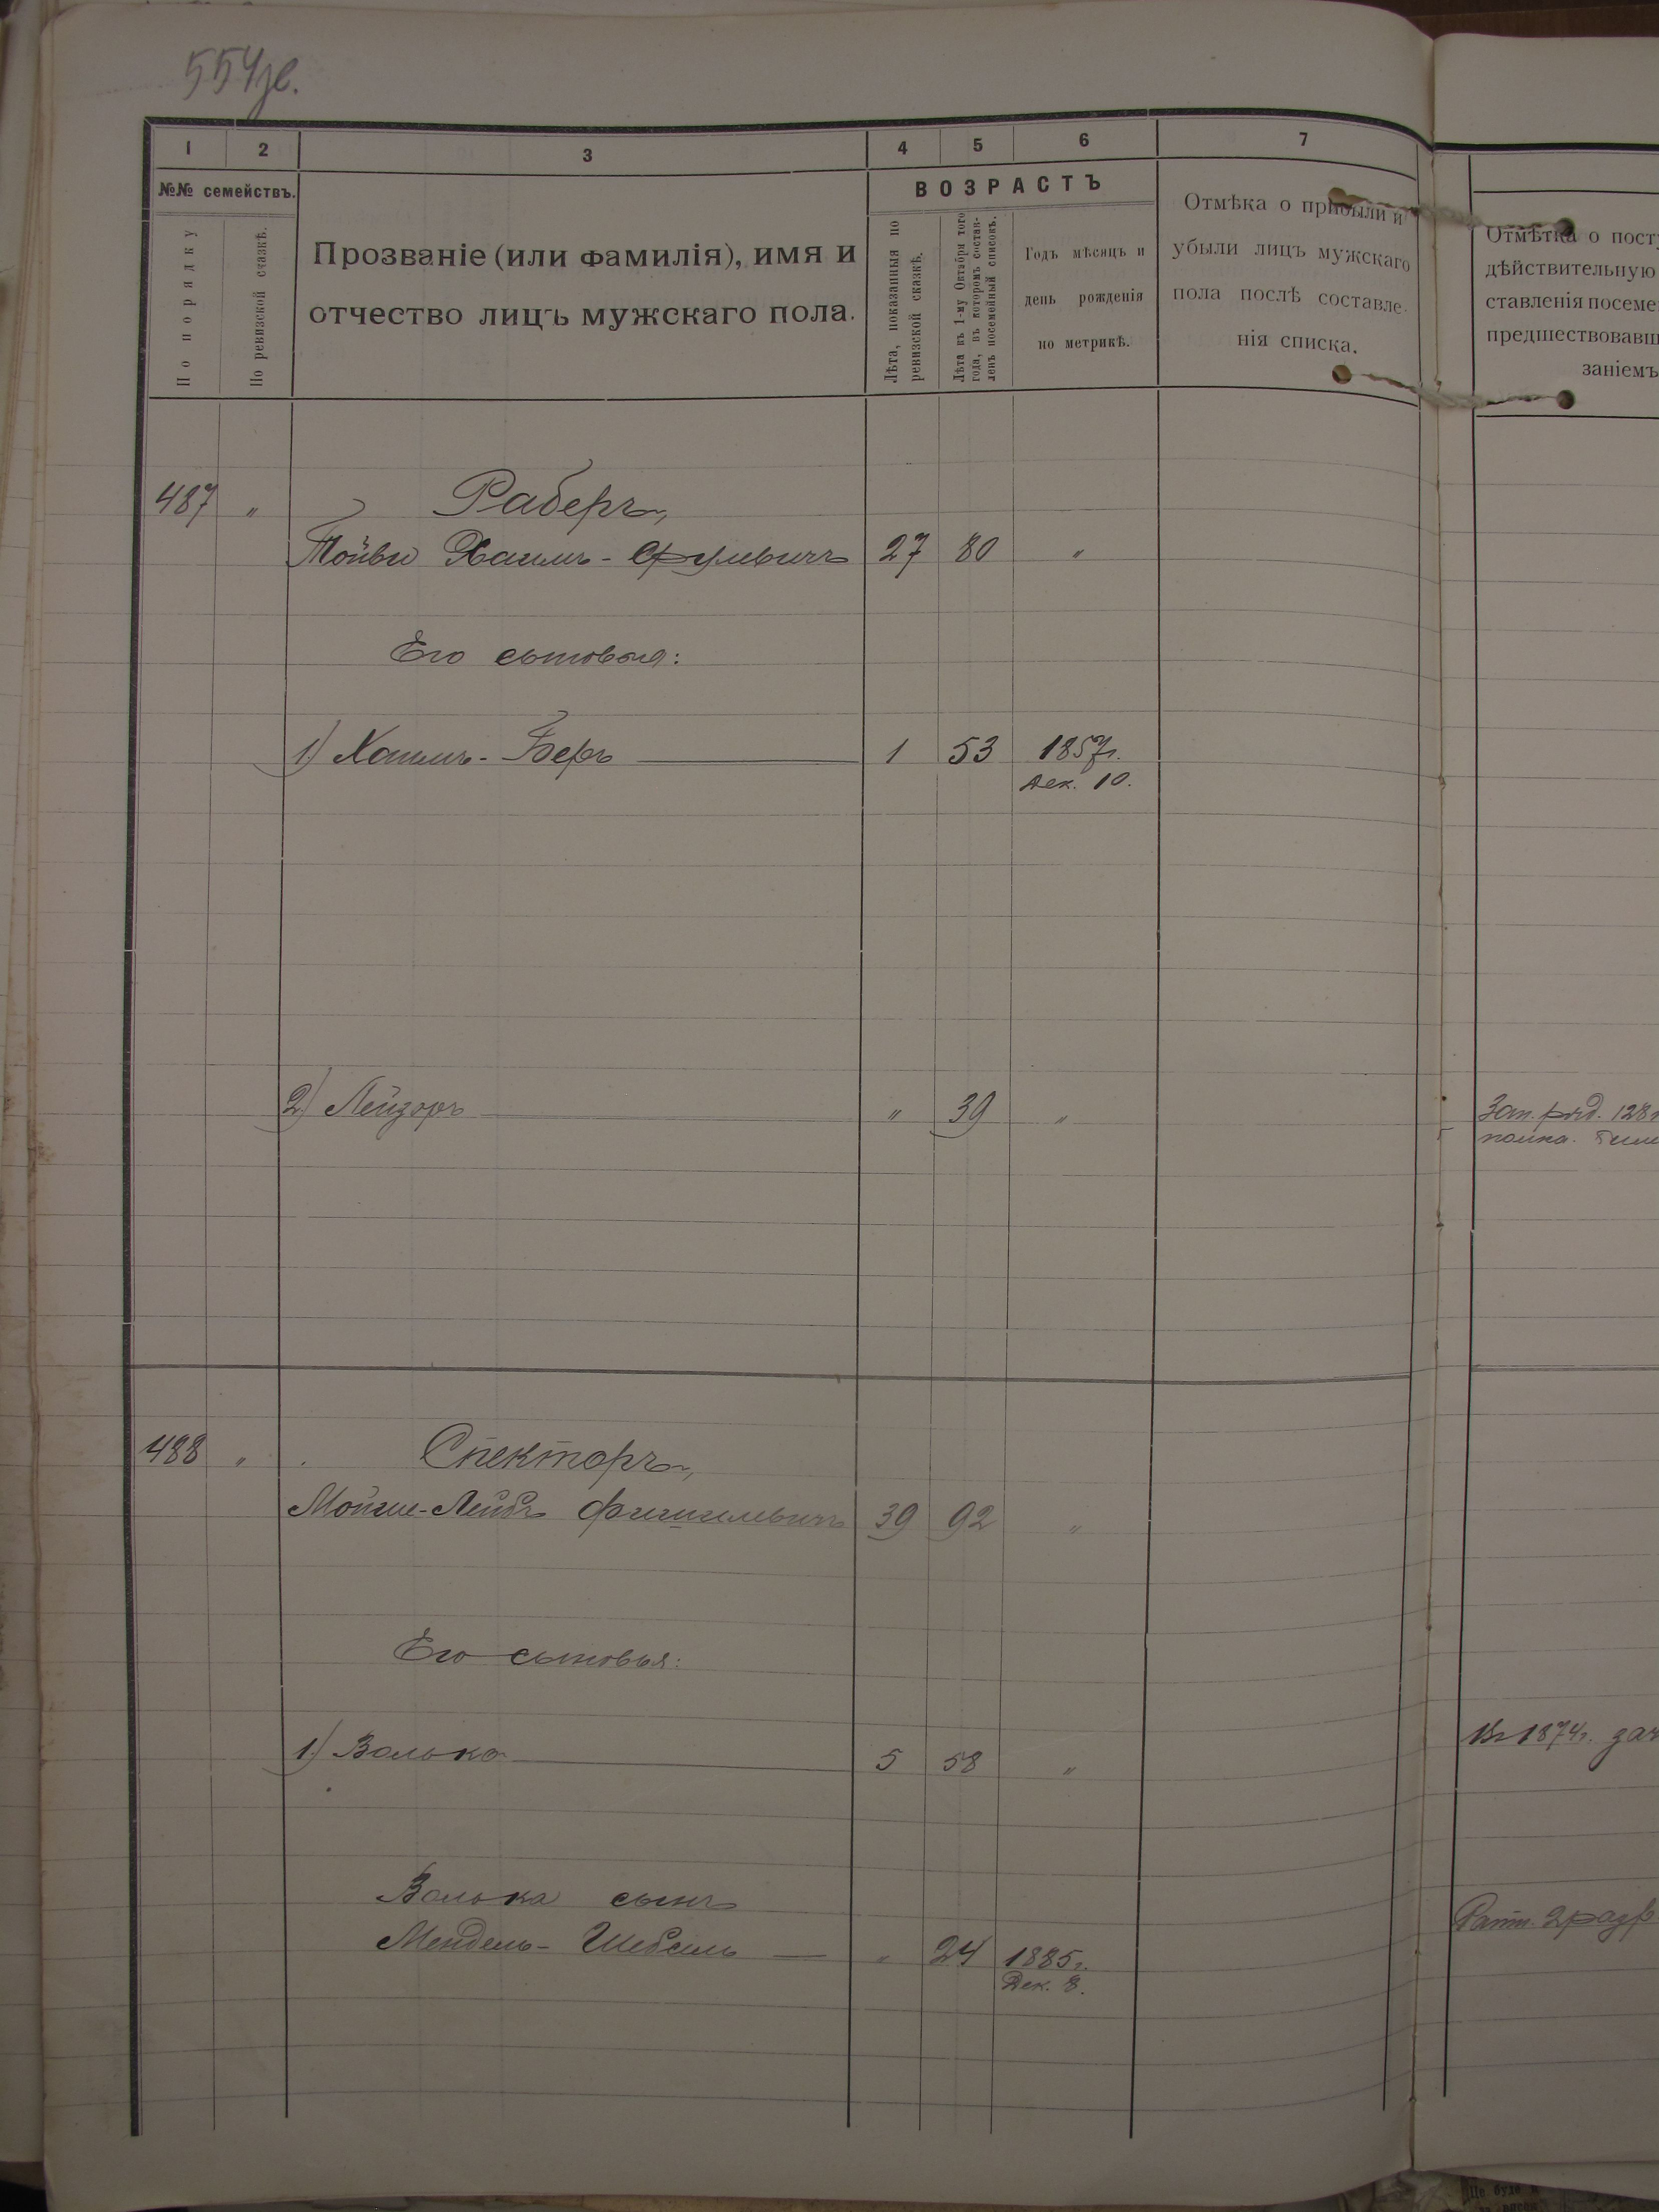 554
1 2 3 4 5 6 7
№№ семействъ.
По порядку
По ревизской сказкѣ.
Прозваніе (или фамилія), имя и
отчество лицъ мужскаго пола.
ВОЗРАСТЪ
Лѣта, показанныя по
ревизской сказкѣ.
Лѣта къ 1-му Октября того
года, въ которомъ состав-
ленъ посемейный списокъ.
Годъ мѣсяцъ и
день рожденія
по метрикѣ.
Отмѣка о прибыли и
убыли лицъ мужскаго
пола послѣ составле-
нія списка.
Отмѣтка о пост
дѣйствительную
ставленія посеме
предшествовавш
заніемъ
487 "
Раберъ,
Тойви Хаимъ- 27 80 "
Его сыновья:
1) Хаимъ-Беръ 1 53 1857г.
Дек. 10.
2) Лейзоръ " 39 "
Зап. ряд. 128
488 "
Спекторъ,
Мойше-Лейбъ Фишилевичъ 39 92 "
Его сыновья:
1) Волько 5 58 "
Въ 1874г. зач
Волька сынъ
Мендель-Шебсель " 24 1885г.
Дек. 8.
Ратн. 2 разр